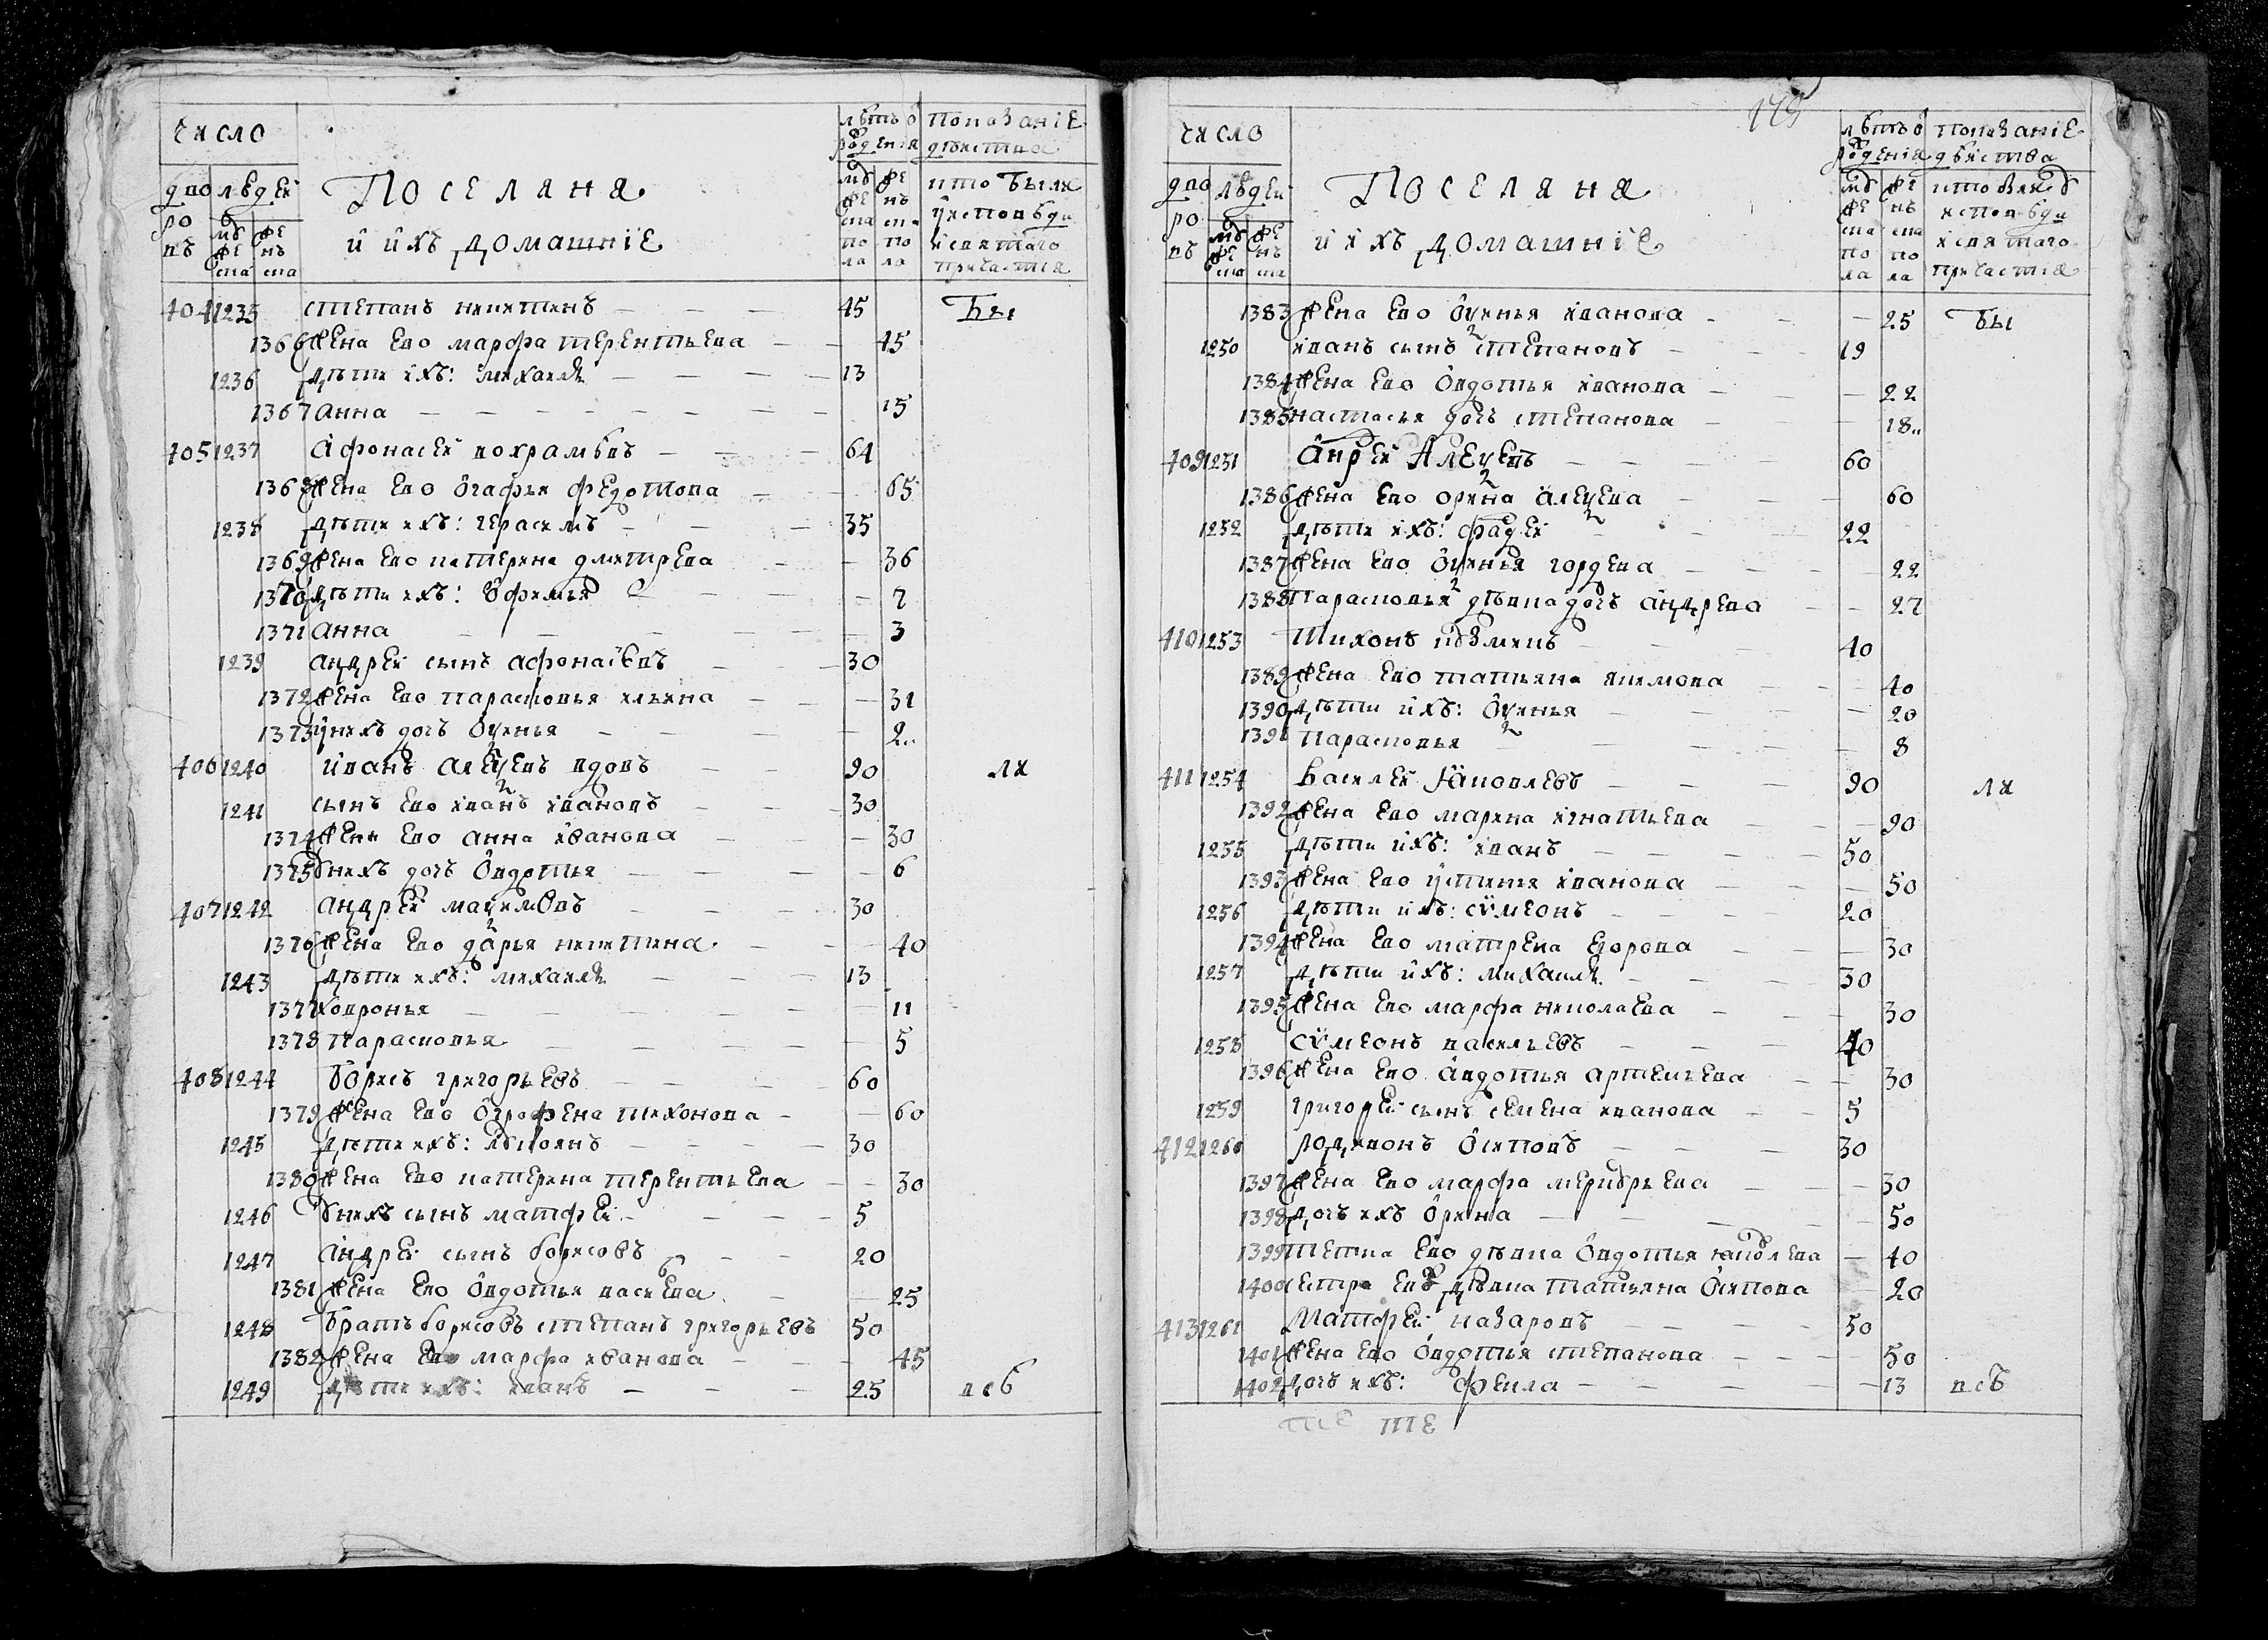 число
дворовъ
людей
мужеска
женска
Поселяня
и ихъ домашніе
лѣтъ о рожденія
мужеска пола
женска пола
показаніе дѣиства
кто были у исповѣди и святаго причастія
404 1235 степанъ никитинъ 45 бы
1366 жена ево марфа терентьева 45
1236 дѣти ихъ: михаилъ 13
1367 анна 15
405 1237 афонасеи вохрамѣвъ 64
1368 жена ево огафья федотова 65
1238 дѣти ихъ: герасимъ 35
1369 жена ево катерина дмитрева 36
1370 дѣти ихъ: офимья 7
1371 анна 3
1239 андреи сынъ афонасѣвъ 30
1372 жена ево парасковья ильина 31
1373 у нихъ дочь оксинья 2
406 1240 иванъ алексеевъ вдовъ 90 ли
1241 сынъ ево иванъ ивановъ 30
1374 жена ево анна иванова 30
1375 у нихъ дочь овдотья 6
407 1242 андреи максимовъ 30
1376 жена ево дарья никитина 40
1243 дѣти ихъ: михаилъ 13
1377 ховронья 11
1378 парасковья 5
408 1244 борисъ григорьевъ 60
1379 жена ево ографена тихонова 60
1245 дѣти ихъ: лукоянъ 30
1380 жена ево катерина терентьева 30
1246 у нихъ сынъ матфеи 5
1247 андреи сынъ борисовъ 20
1381 жена ево овдотья васиева 25
1248 братъ борисовъ степанъ григорьевъ 50
1382 жена ево марфа иванова 45
1249 дѣти ихъ: иванъ 25 всѣ
179
число
дворовъ
людеи
мужеска
женска
Поселяня
и ихъ домашніе
лѣтъ о рожденія
мужеска пола
женска пола
показаніе дѣиства
кто были у исповѣди и святаго причастія
1383 жена ево оксинья иванова 25 бы
1250 иванъ сынъ степановъ 19
1384 жена ево овдотья иванова 22
1385 настасья дочь степанова 18
409 1251 анреи алексевъ 60
1386 жена ево орина алексева 60
1252 дѣти ихъ: фадеи 22
1387 жена ево оксинья гордева 22
1388 парасковья дѣвка дочь андрева 27
410 1253 тихонъ кузмивъ 40
1389 жена ево татьяна якимова 40
1390 дѣти ихъ: оксинья 20
1391 парасковья 8
411 1254 василеи яковлевъ 90 ли
1392 жена ево марина игнатьева 90
1255 дѣти ихъ: иванъ 50
1393 жена ево устинья иванова 50
1256 дѣти ихъ: сѵмеонъ 20
1394 жена ево матрена егорова 30
1257 дѣти ихъ: михаилъ 30
1395 жена ево марфа николаева 30
1258 сѵмеонъ васильевъ 40
1396 жена ево авдотья артемьева 30
1259 григореи сынъ семена иванова 5
412 1260 родивонъ осиповъ 30
1397 жена ево марфа меркурьева 30
1398 дочь ихъ орина 50
1399 тетка ево дѣвка овдотья яковлева 40
1400 сестра ево дѣвка татьяна осипова 20
413 1261 матфеи назаровъ 50
1401 жена ево овдотья степанова 50
1402 дочь ихъ: фекла 13 всѣ
те те